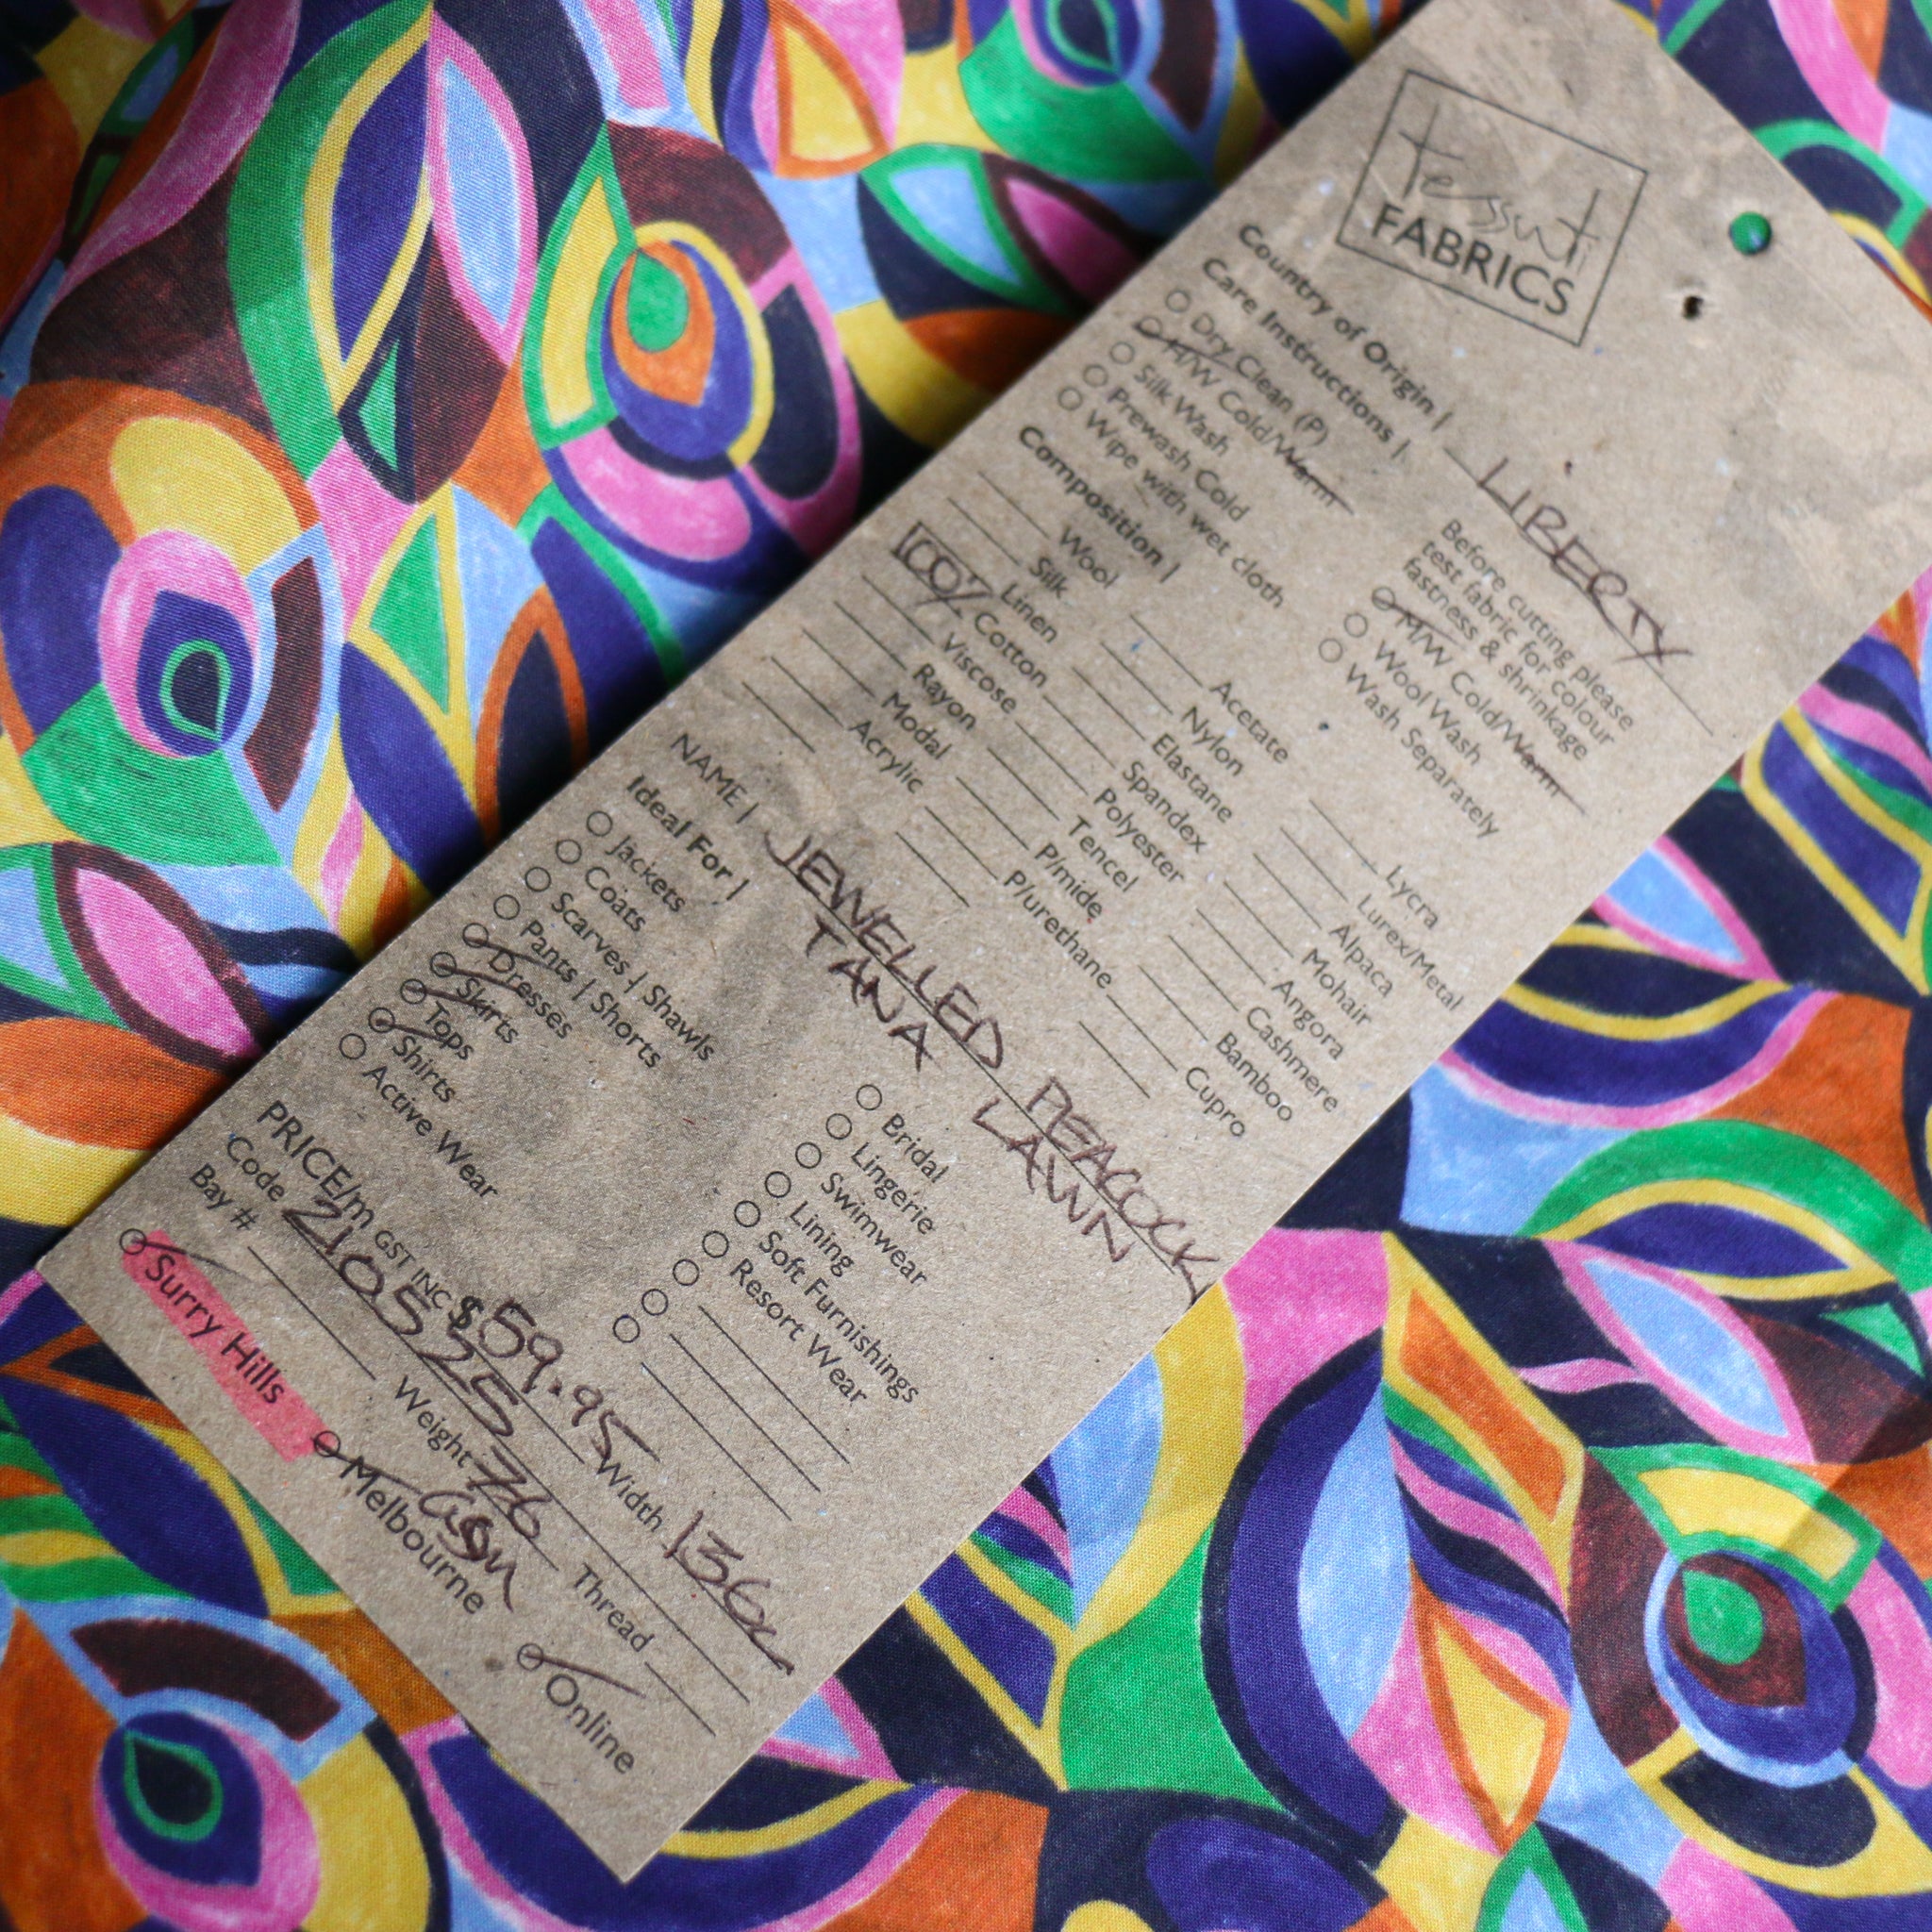 tessuti
FABRICS
Country of Origin | LIBERTY
Care Instructions |
Dry Clean (P)
H/W Cold/Warm
Silk Wash
Prewash Cold
Wipe with wet cloth
Before cutting please
test fabric for colour
fastness & shrinkage
M/W Cold/Warm
Wool Wash
Wash Separately
Composition |
Wool
Silk
Linen
100% Cotton
Viscose
Rayon
Modal
Acrylic
Acetate
Nylon
Elastane
Spandex
Polyester
Tencel
P/mide
P/urethane
Lycra
Lurex/Metal
Alpaca
Mohair
Angora
Cashmere
Bamboo
Cupro
NAME | JEWELLED PEACOCK
TANA LAWN
Ideal For |
Jackets
Coats
Scarves | Shawls
Pants | Shorts
Dresses
Skirts
Tops
Shirts
Active Wear
Bridal
Lingerie
Swimwear
Lining
Soft Furnishings
Resort Wear
PRICE/m GST INC $59.95
Code 2105525 Width 136
Bay # Weight 76 gsm Thread
Surry Hills Melbourne Online